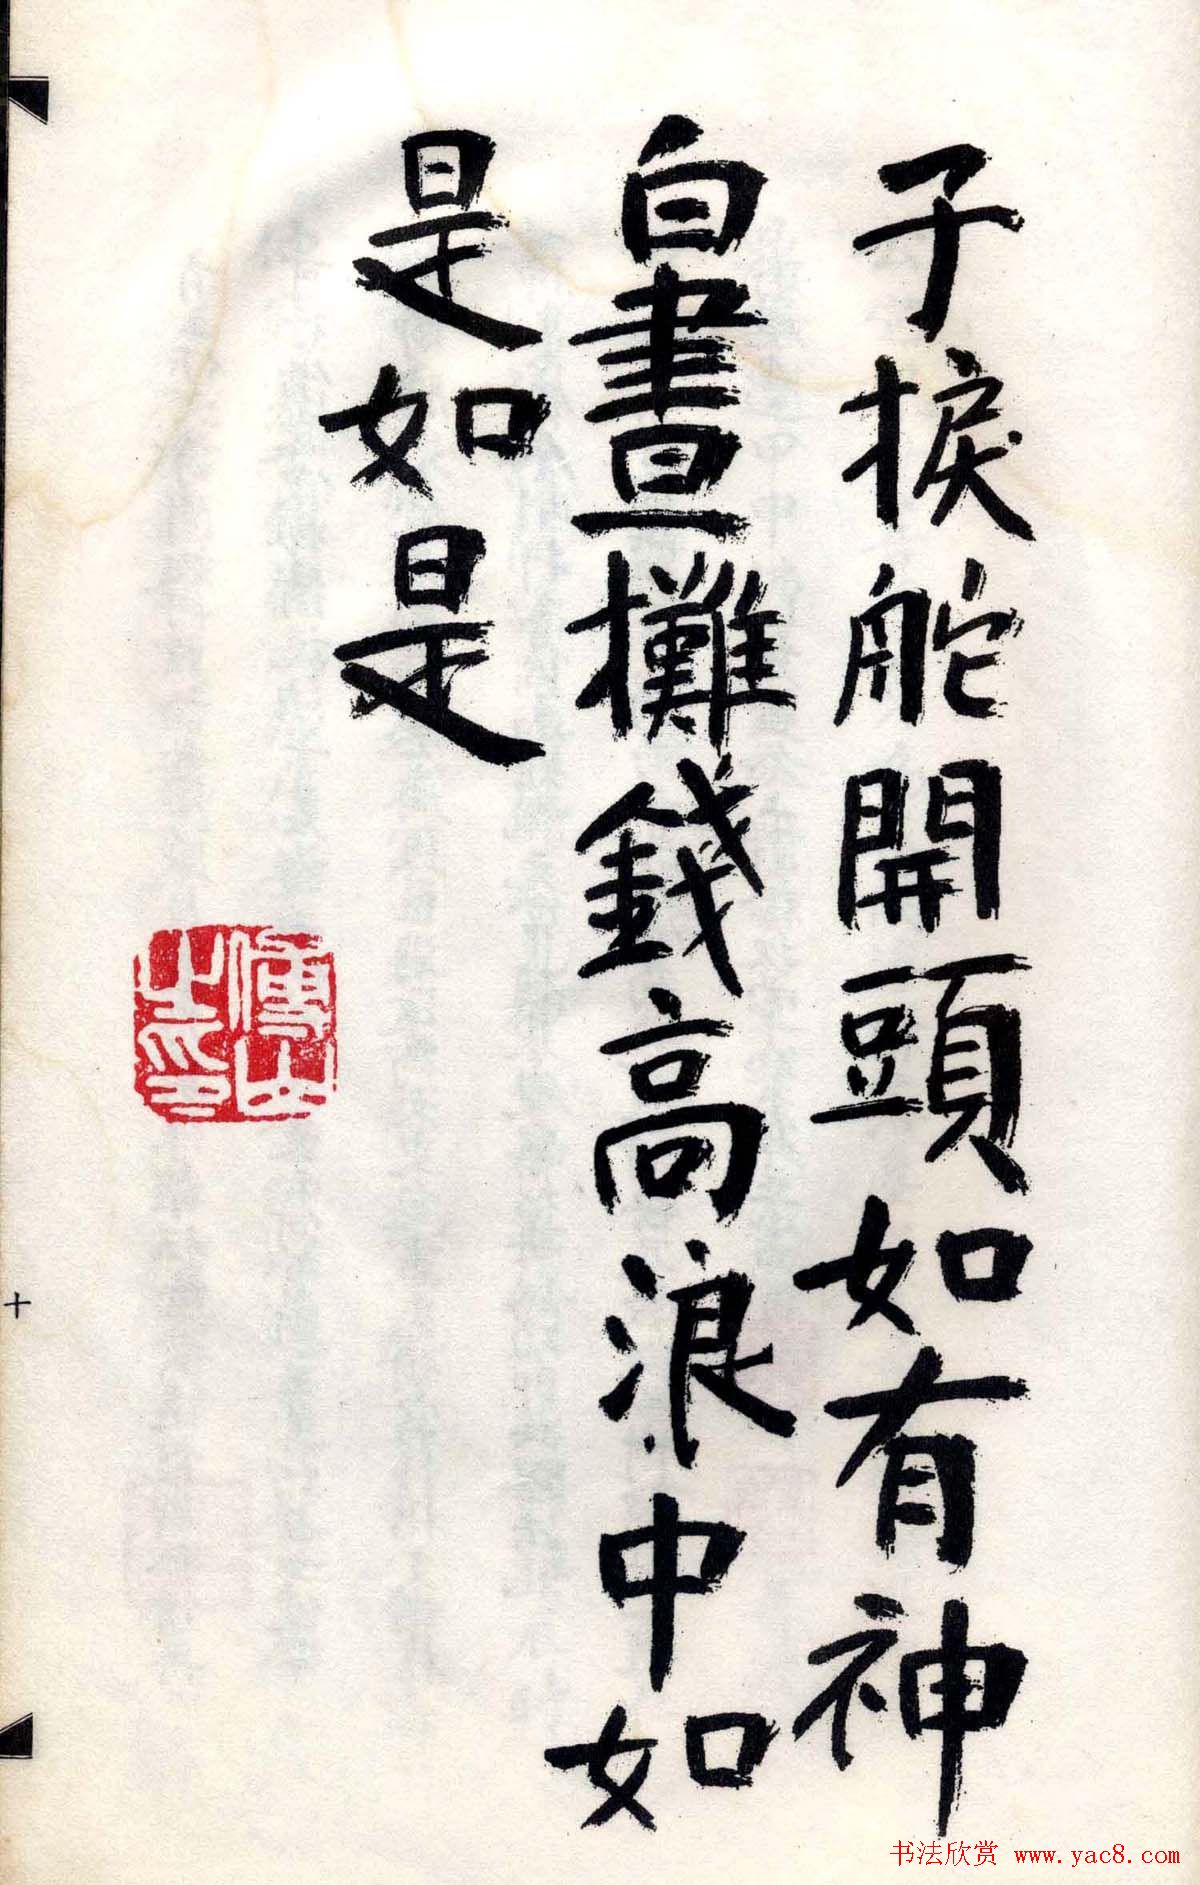 子捩舵開頭如有神
白晝攤錢高浪中如
是如是
傅山
之印
十
书法欣赏 www.yac8.com